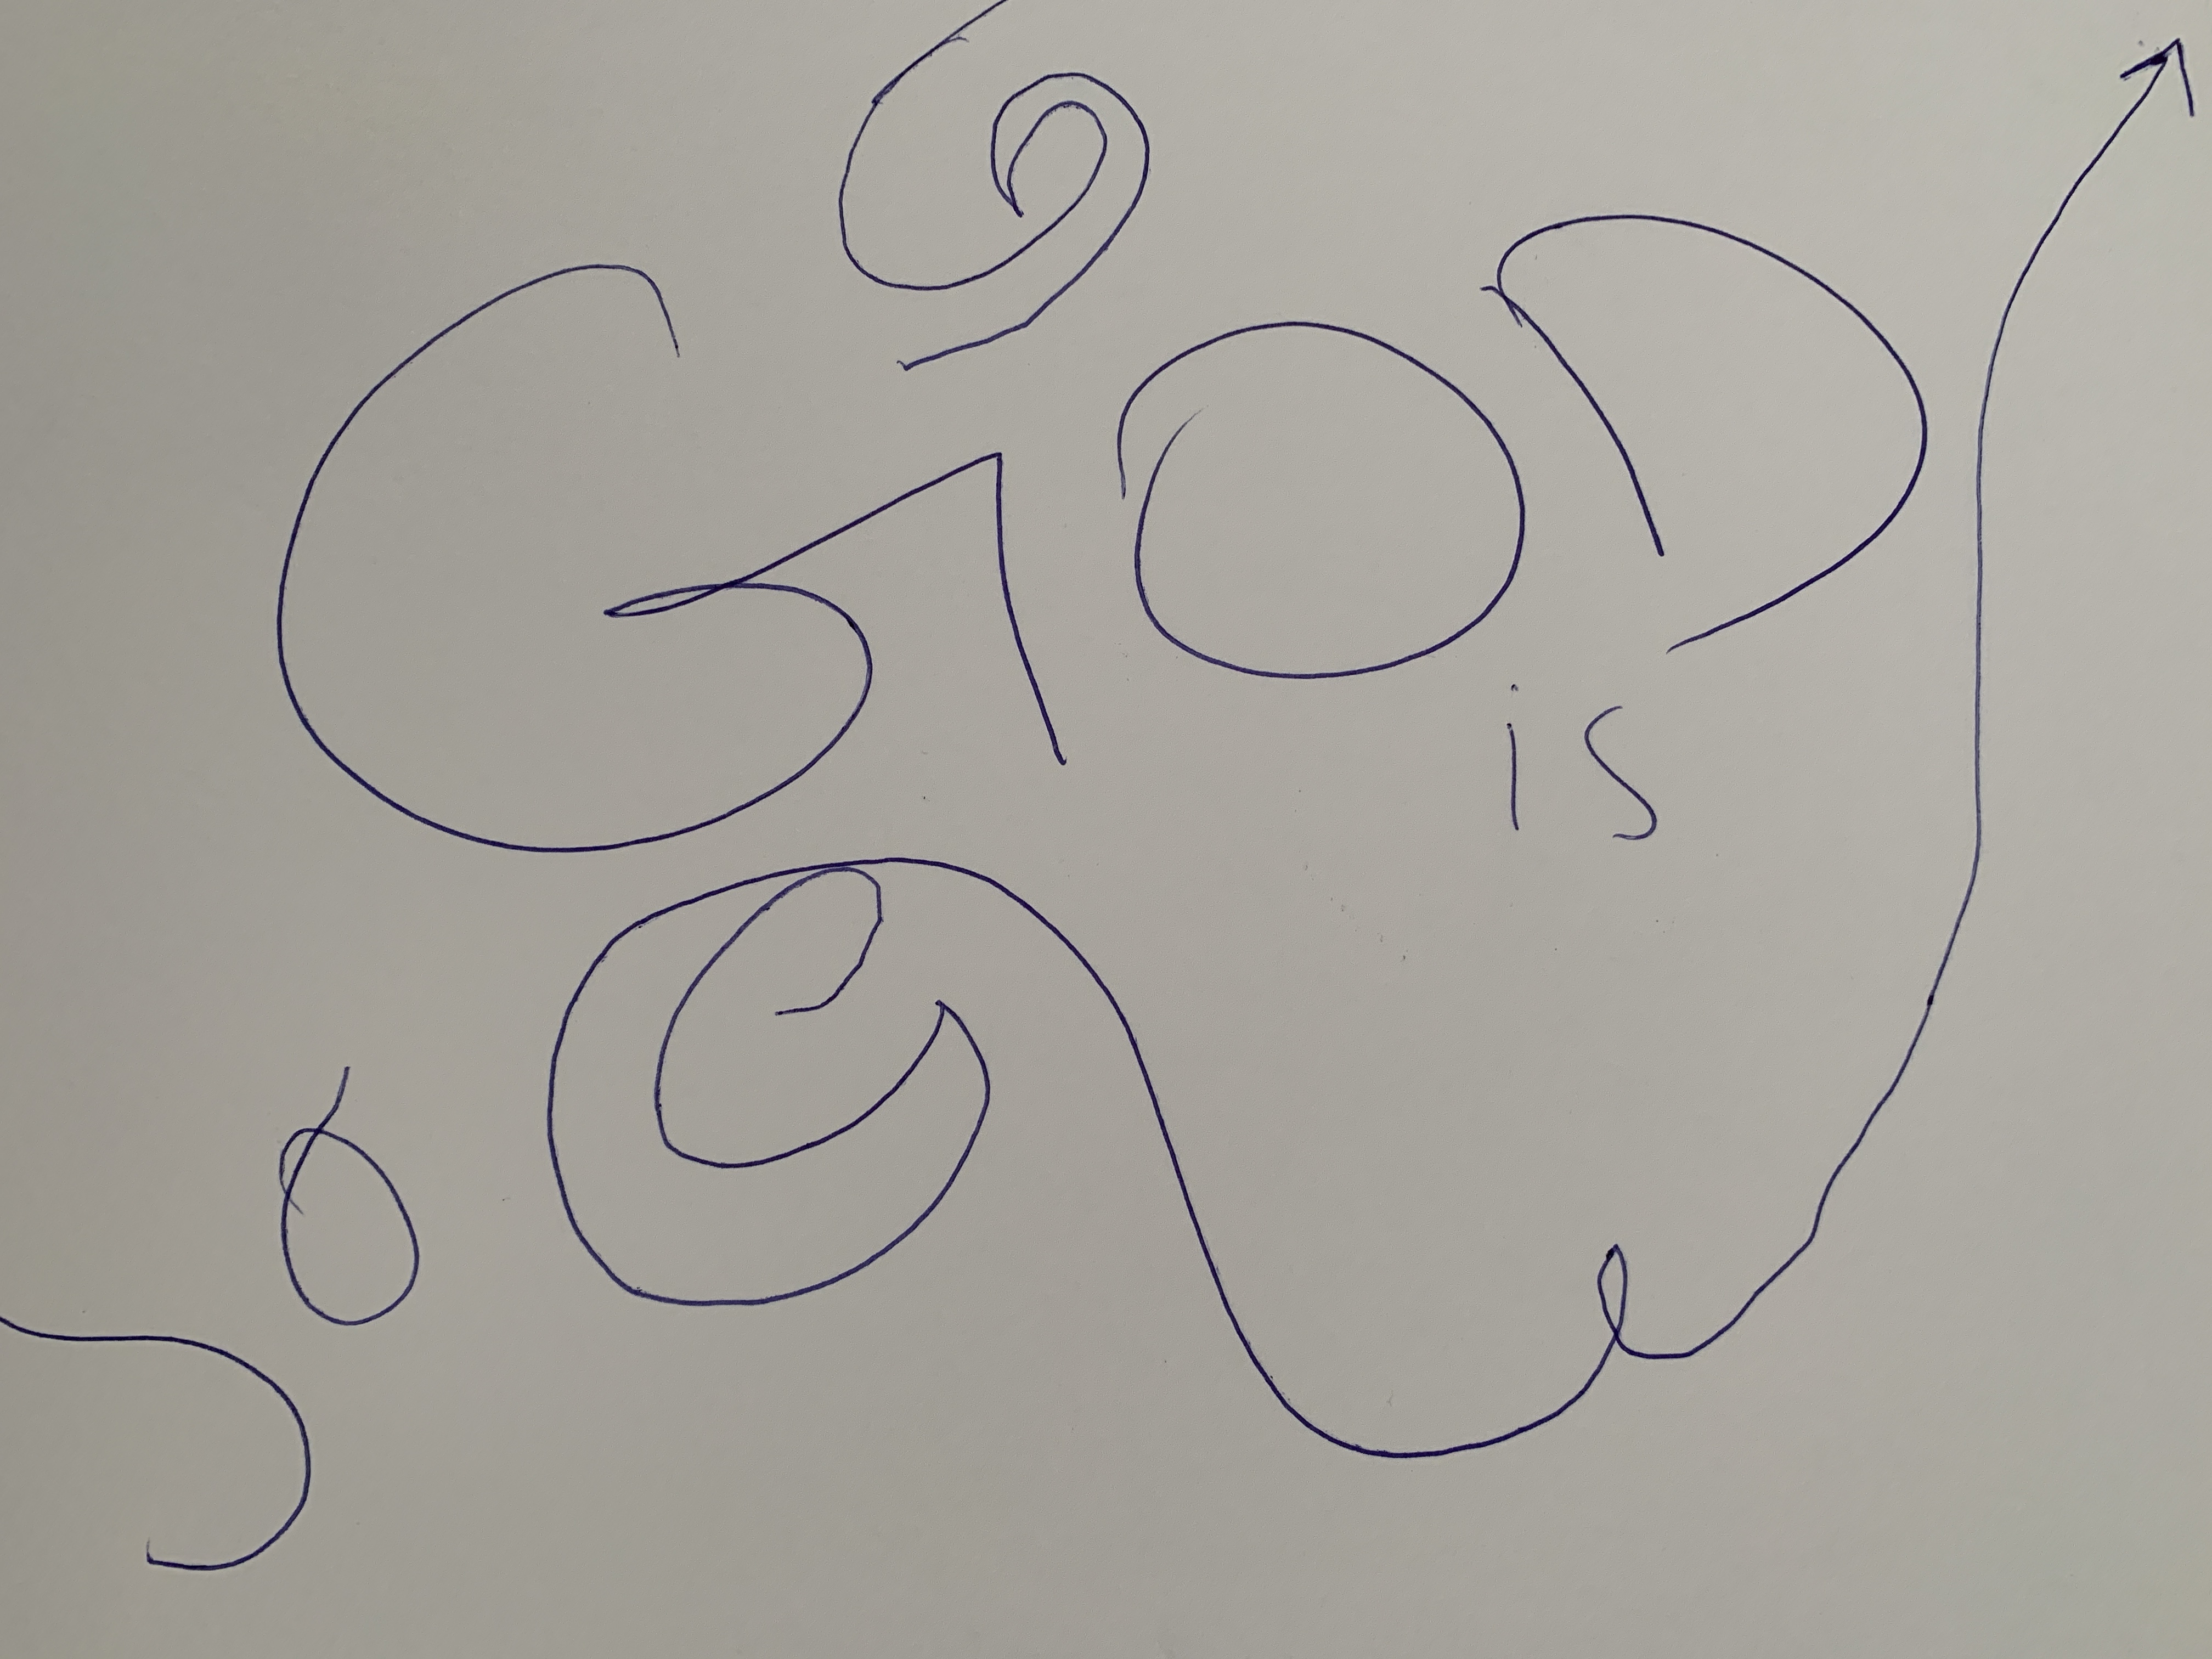 GOD
is